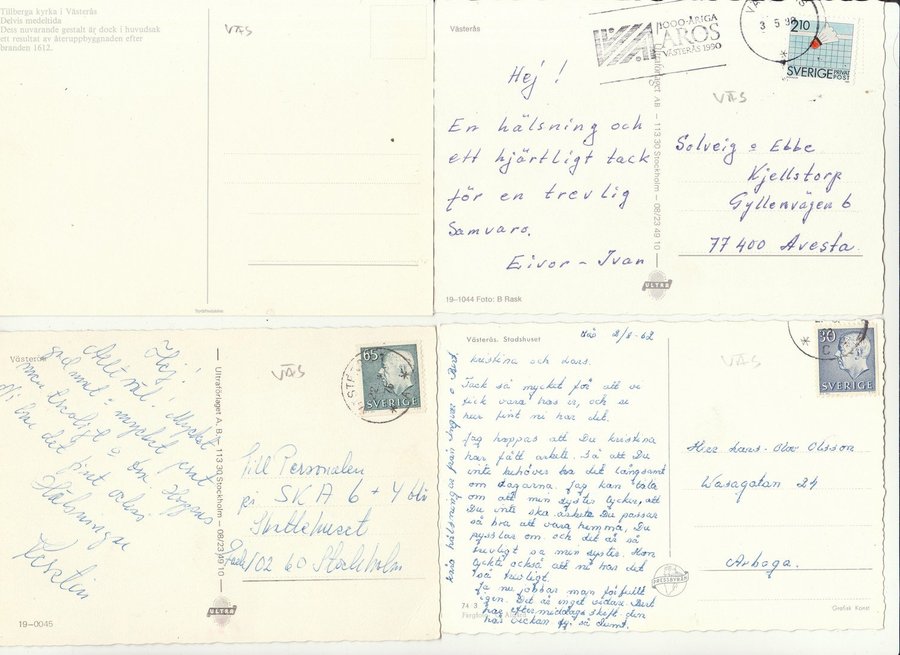 Tillberga kyrka i Västerås
Delvis medeltida
Dess nuvarande gestalt är dock i huvudsak
ett resultat av återuppbyggnaden efter
branden 1612.
VÄS
Västerås
1000-ÅRIGA
AROS
VÄSTERÅS 1990
3 5 90
2,10
SVERIGE PRIVAT
POST
VÄS
Hej!
En hälsning och
ett hjärtligt tack
för en trevlig
Samvaro.
Eivor - Ivan
Ultraförlaget AB – 113 30 Stockholm – 08/23 49 10 –
ULTRA
Solveig o Ebbe
Kjellstorp
Gyllenvägen 6
77400 Avesta
19–1044 Foto: B Rask
Västerås
VÄS
65
SVERIGE
Hej!
Allt väl! Mycket
god mat o mycket prat
men trevligt o
Ni har det fint också
Hälsningar
Kerstin
Ultraförlaget A. B. – 113 30 Stockholm – 08/23 49 10 –
ULTRA
Till Personalen
på SKA 6 + 4 bli
Skattehuset
Fack/102 60 Stockholm
19–0045
Västerås. Stadshuset
VÄS
30
SVERIGE
2/8-62
Kristina och Lars.
Tack så mycket för att vi
fick vara hos er, och se
hur fint ni har det.
Jag hoppas att Du Kristina
har fått arbete. Så att Du
inte behöver ha det långsamt
om dagarna. Jag kan tala
om att min syster tycker, att
Du inte ska arbeta Du passar
så bra att vara hemma, Du
pysslar om och det är så
trevligt sa min syster. Hon
tyckte också att ni har det
så trevligt.
Ja nu jobbar man för fullt
igen. Det är inget vidare. Bert
har eftermiddagsskift den
här veckan
hälsningar från Ingvor o Bert.
PRESSBYRÅN
Herr Lars-Olov Olsson
Wasagatan 24
Arboga.
74 3
Grafisk Konst